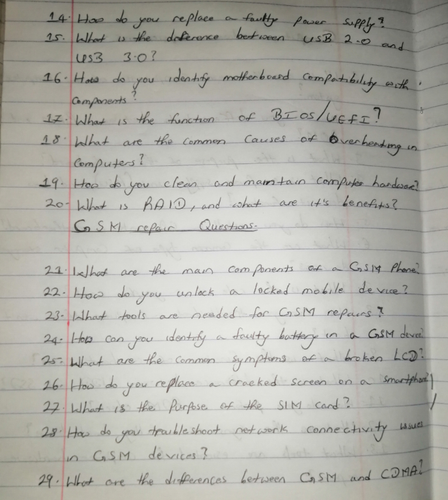 14. How do you replace a faulty power supply?
15. What is the difference between USB 2.0 and
USB 3.0?
16. How do you identify motherboard compatibility with
components?
17. What is the function of BIOS/UEFI?
18. What are the common causes of overheating in
computers?
19. How do you clean and maintain computer hardware?
20. What is RAID, and what are it's benefits?
GSM repair Questions:
21. What are the main components of a GSM Phone?
22. How do you unlock a locked mobile device?
23. What tools are needed for GSM repairs?
24. How can you identify a faulty battery in a GSM device
25. What are the common symptoms of a broken LCD?
26. How do you replace a cracked screen on a smartphone?
27. What is the Purpose of the SIM card?
28. How do you troubleshoot network connectivity issues
in GSM devices?
29. What are the differences between GSM and CDMA?